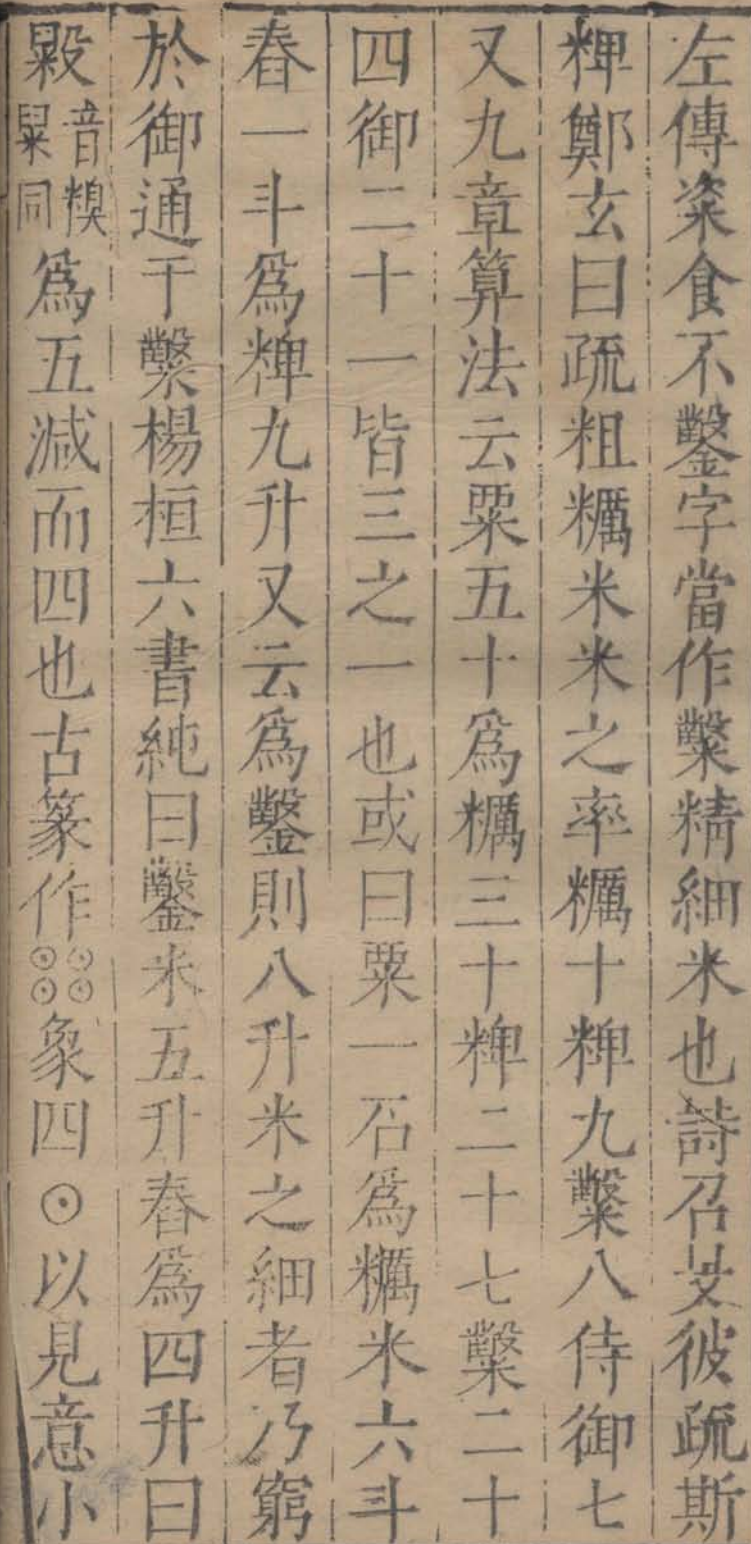 左傳粢食不鑿字當作糳精細米也詩召旻彼疏斯
粺鄭玄曰疏粗糲米米之率糲十粺九糳八侍御七
又九章算法云粟五十爲糲三十粺二十七糳二十
四御二十一皆三之一也或曰粟一石爲糲米六斗
舂一斗爲粺九升又云爲鑿則八升米之細者乃窮
於御通于糳楊桓六書統曰鑿米五升舂爲四升曰
音糗𥹺同爲五減而四也古篆作象四⊙以見意小